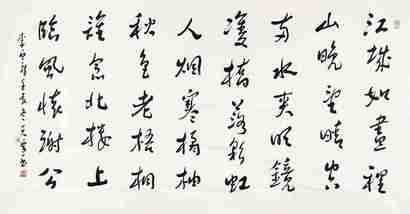 江城如畫裡
山晚望晴空
兩水夾明鏡
雙橋落彩虹
人烟寒橘柚
秋色老梧桐
誰念北樓上
臨風懷謝公
李白詩